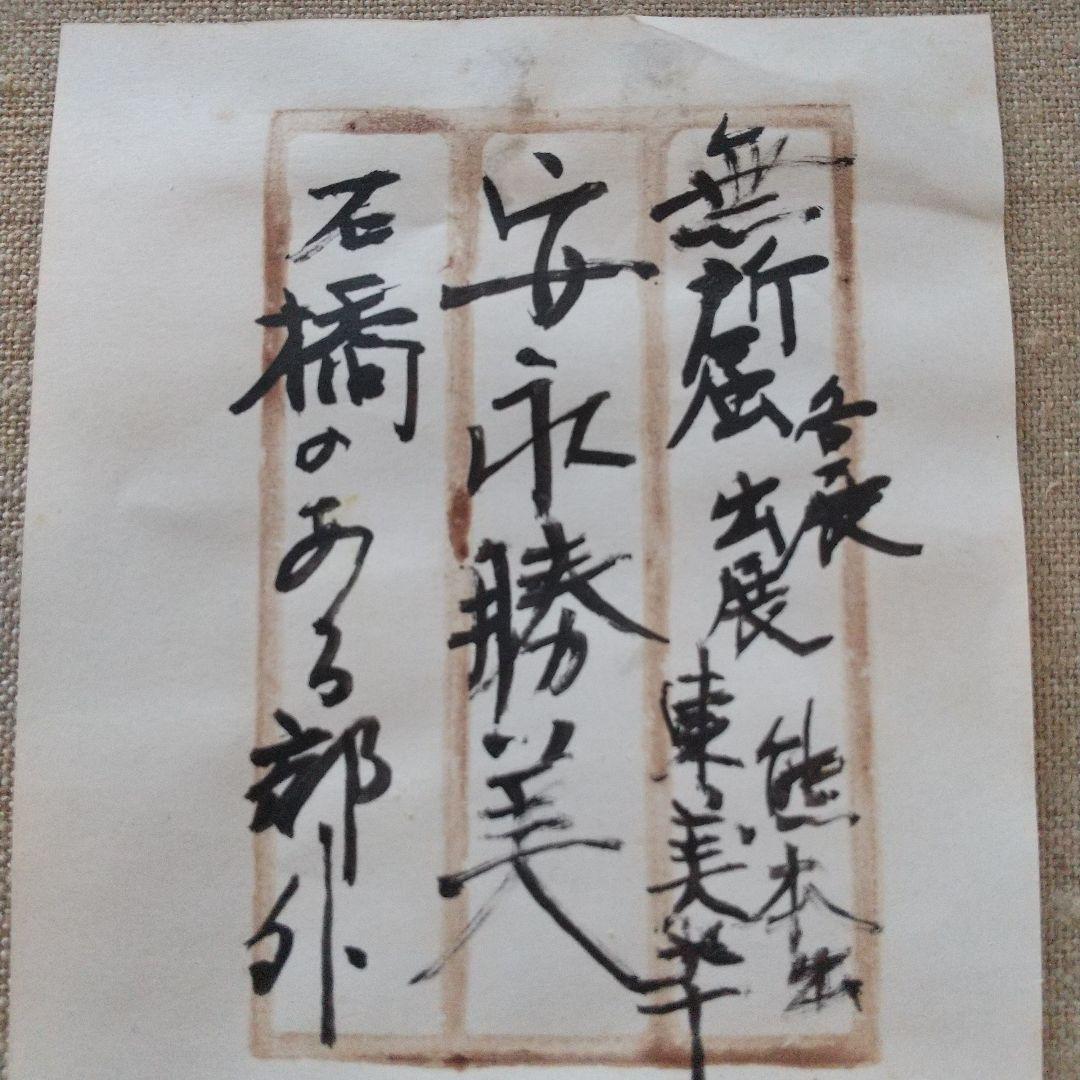 無所属
各展
出展
熊本出
東美
安永勝美
石橋のある郊外